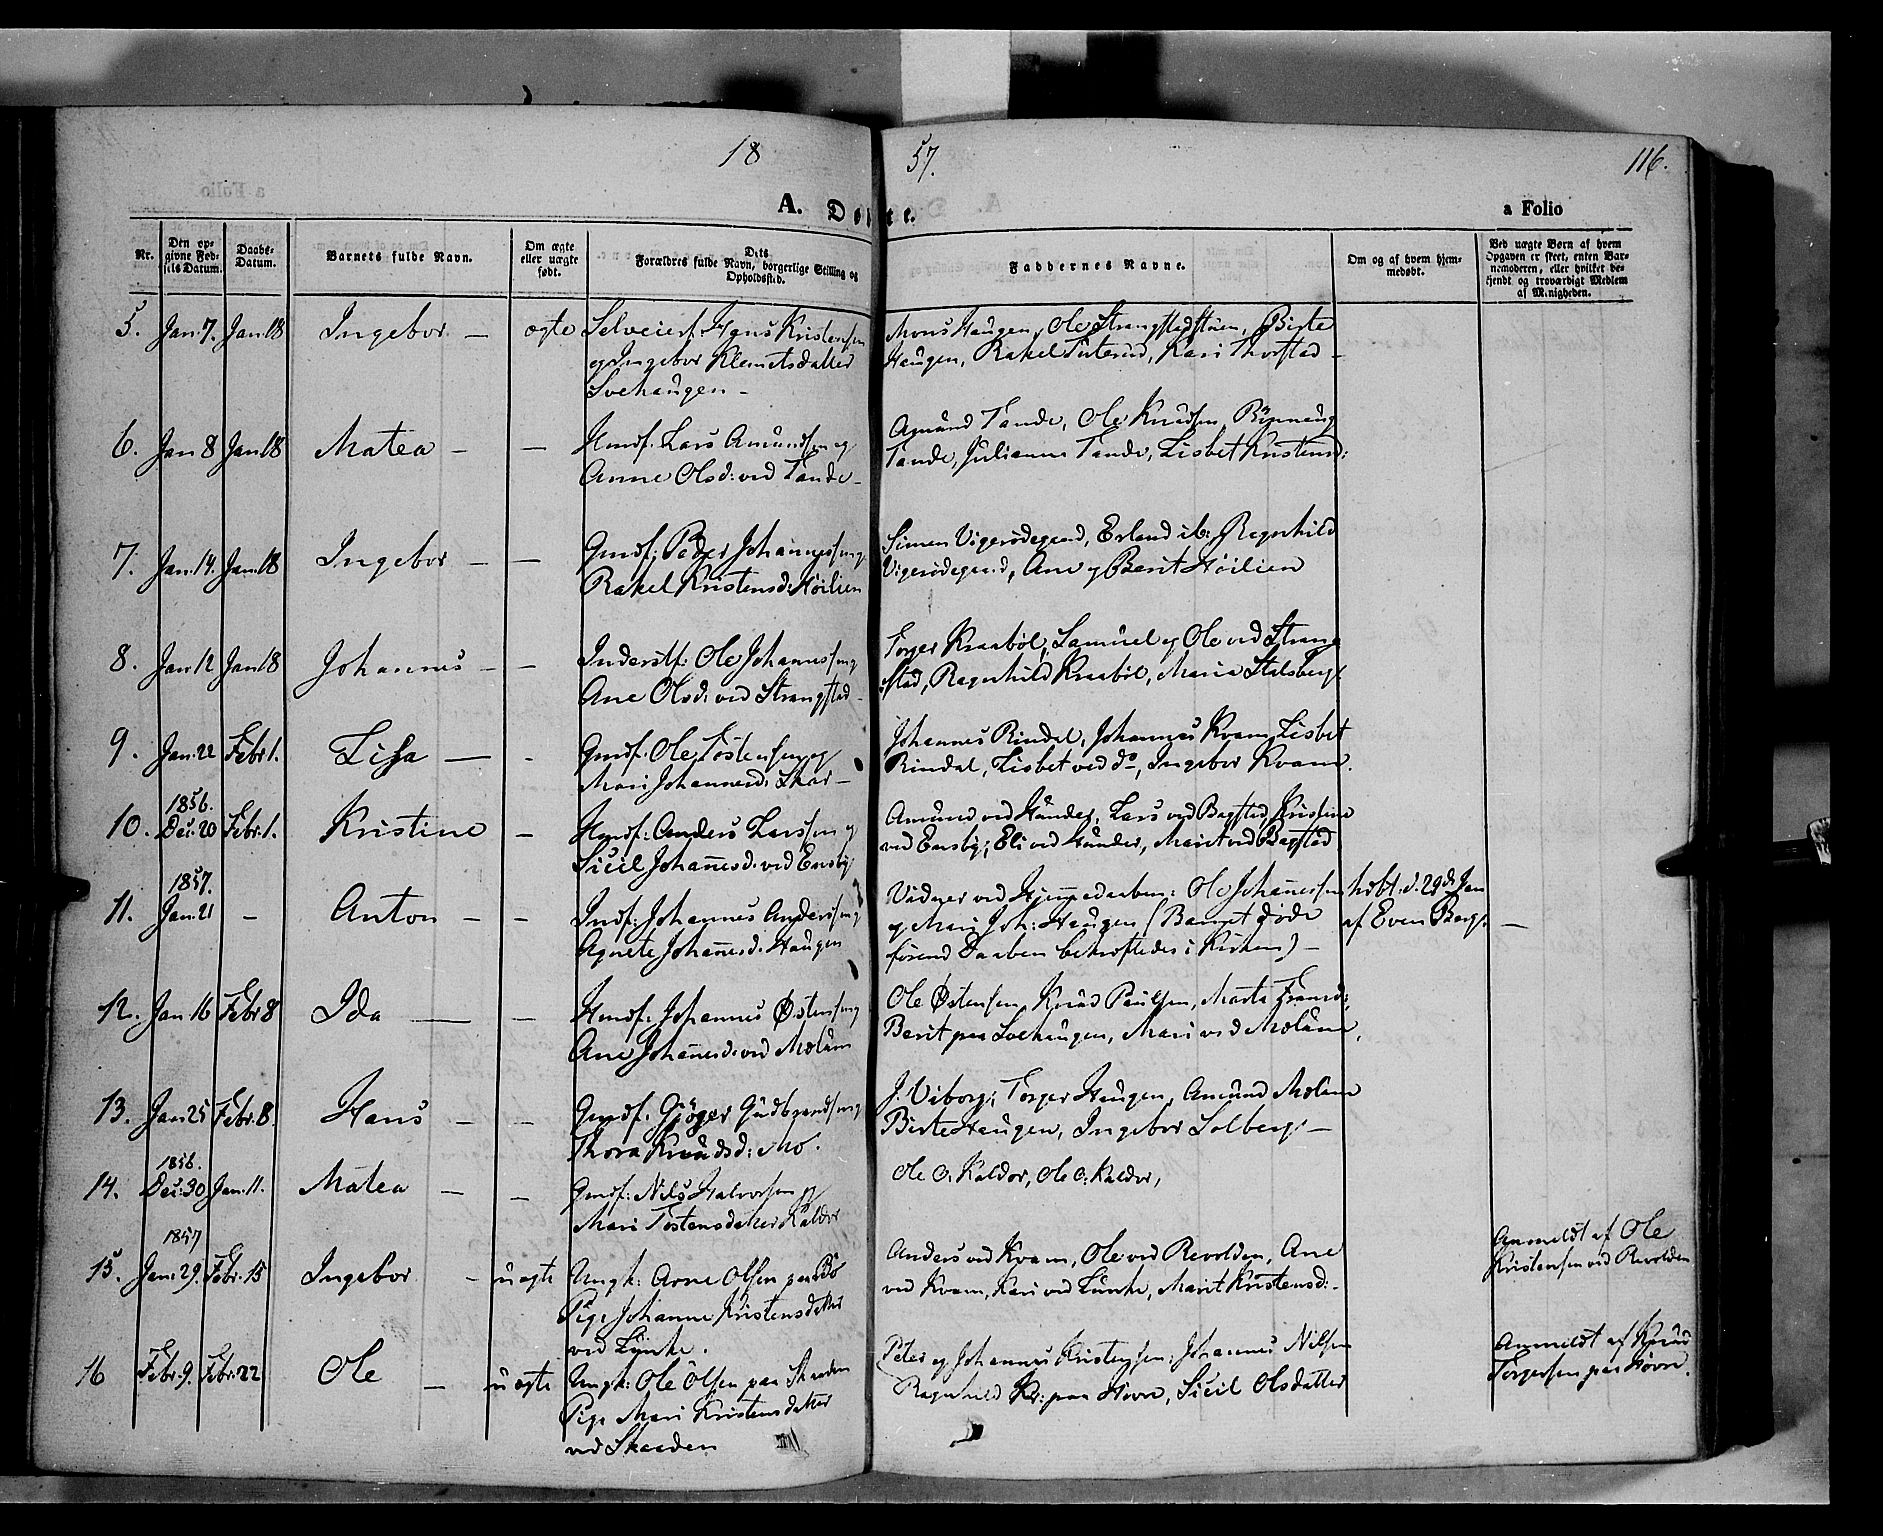 18 57. 116.
A. Døbte. a Folio
Nr. | Den opgivne Fødsels Datum. | Daabs-Datum. | Barnets fulde Navn. | Om ægte eller uægte født. | Dets Forældres fulde Navn, borgerlige Stilling og Opholdssted. | Faddernes Navne. | Om og af hvem hjemmedøbt. | Ved uægte Børn af hvem Opgaven er skeet, enten Barnemoderen, eller hvilket bekjendt og troværdigt Medlem af Menigheden.
5. Jan. 7. Jan. 18 Ingebor — ægte Selveierf. Hans Kristensen Mons Haugen, Ole Strangstadstuen, Birte
og Ingebor Klemetsdatter Haugen, Rakel Kari Thorstad —
Svehaugen —
6. Jan 8 Jan. 18 Matea — — Hmdf. Lars Amundsen og Amund Tande, Ole Knudsen, Rønnaug
Anne Olsd: ved Tande — Tande, Julianne Tande, Lisbet Kristensd:
7. Jan. 14. Jan. 18 Ingebor — — Gmdf: Peder Johannessen og Simen Vigerødegaard, Erland ib: Ragnhild
Rakel Kristensd: Høilien Vigerødegaard, Ane og Berit Høilien
8. Jan. 12 Jan. 18 Johannes — — Inderstf: Ole Johannessen og Torger Kraabøl, Samuel og Ole ved Strang
Ane Olsd: ved Strangstad — stad, Ragnhild Kraabøl, Maria Stalsberg.
9. Jan. 22 Febr. 1. Lisa — — Gmdf: Ole Tostensen og Johannes Rindal, Johannes Kvam, Lisbet
Mari Johannesd: Skar — Rindal, Lisbet ved do, Ingebor Kvam.
1856.
10. Dec. 20 Febr. 1. Kristine — Hmdf: Anders Larssen og Amund ved Hunder, Lars ved Bagstad, Kristine
Sicil Johannesd: ved Ensby ved Ensby; Eli ved Hunder, Marit ved Bagstad
1857.
11. Jan. 21 — Anton — — Indf: Johannes Anderssen og Vidner ved Hjemmedaaben: Ole Johannessen høbt: d. 29de Jan
Agnete Johannesd: Haugen og Mari Joh: Haugen (Barnet døde af Even Berg. —
førend Daaben bekræftedes i Kirken) —
12. Jan 16 Febr. 8 Ida — — Hmdf: Johannes Østensen og Ole Østensen, Knud Paulsen, Marte Fransd:
Ane Johannesd: ved Molum Berit paa Svehaugen, Mari ved Molum.
13. Jan. 25 Febr. 8. Hans — — Gmdf: Gjøger Gudbrandsen og J. Viborg; Torger Haugen, Amund Molum
Thora Knudsd: Mo. Birte Haugen, Ingebor Solberg. —
1856.
14. Dec. 30 Jan. 11. Matea — — Gmdf: Nils Halvorsen og Ole O. Kaldor, Ole O: Kaldor,
Mari Tostensdatter Kaldor
1857
15. Jan. 29. Febr. 15 Ingebor — uægte Ungk: Arne Olsen paa Bø Anders ved Kvam, Ole ved Revolden, Ane Anmeldt af Ole
Pige Johanne Kristensdatter ved Kvam, Kari ved Lunke, Marit Kristensd: — Kristensen ved Revolden
ved Lunke.
16 Febr. 9. Febr. 22 Ole — uægte Ungk: Ole Olsen paa Skaaden Peter og Johannes Kristensen; Johannes Nilsen Anmeldt af Knud
Pige Mari Kristensdatter Ragnhild Kr: paa Hovn, Sicil Olsdatter Torgersen paa Hovn.
ved Skaaden